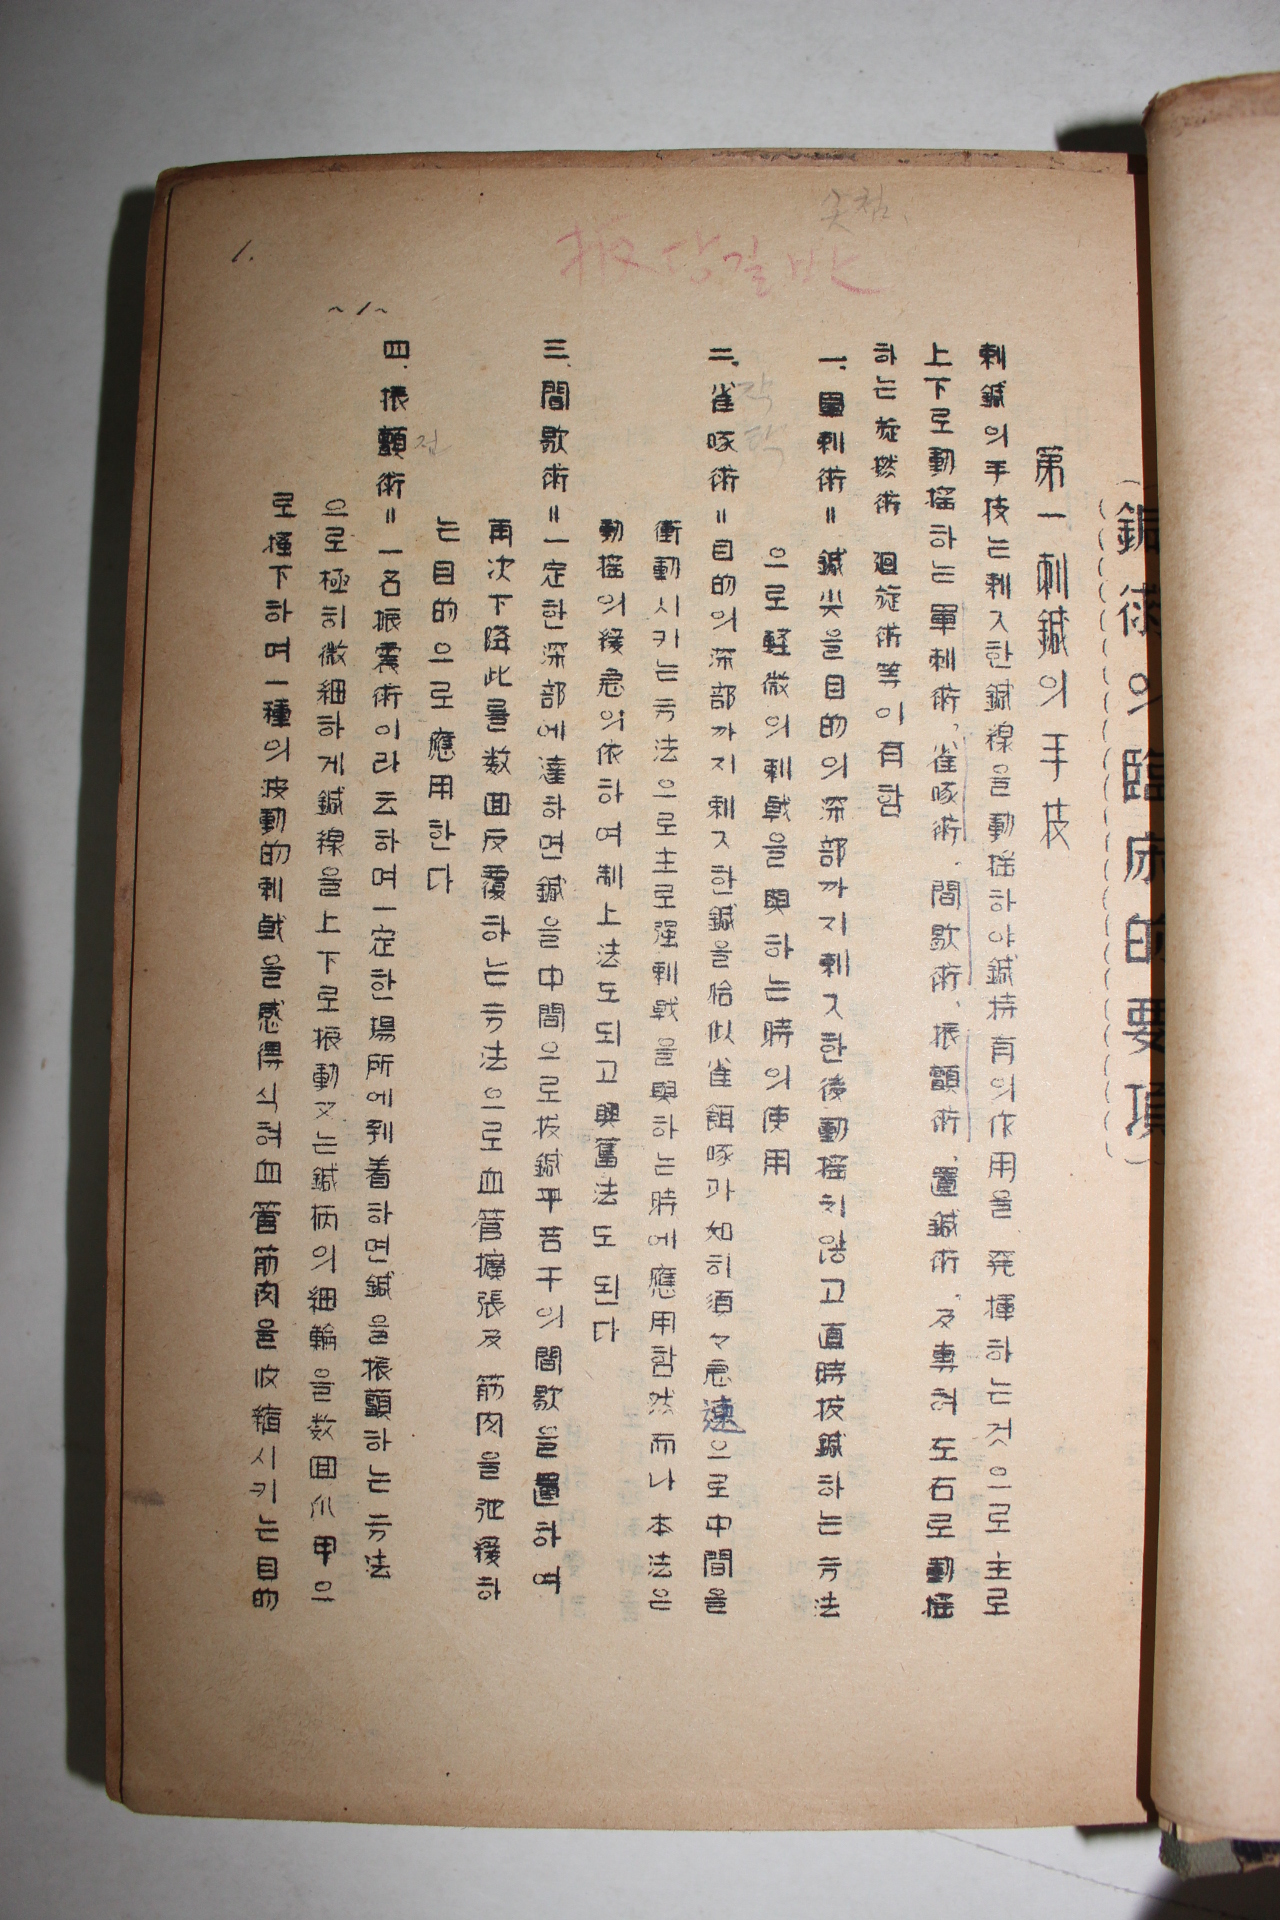 鍼術의臨床的要項
第一刺鍼의手技
刺鍼의手技는刺入한鍼線을動揺하야鍼特有의作用을発揮하는것으로主로
上下로動揺하는單刺術、雀啄術、間歇術、振顫術、置鍼術、及專혀도右로動揺
하는旋撚術 廻旋術等이有함
一、單刺術＝鍼尖을目的의深部까지刺入한後動揺치않고直時拔鍼하는方法
으로軽微의刺戟을與하는時의使用
二、雀啄術＝目的의深部까지刺入한鍼을恰似雀餌啄가如히須々急速으로中間을
衝動시키는方法으로主로强刺戟을與하는時에應用함然而나本法은
動揺의緩急의依하여制止法도되고興奮法도된다
三、間歇術＝一定한深部에達하면鍼을中間으로拔鍼平若干의間歇을置하여
再次下降此를数回反覆하는方法으로血管擴張及筋肉을弛緩하
는目的으로應用한다
四、振顫術＝一名振震術이라云하며一定한場所에到着하면鍼을振顫하는方法
으로極히微細하게鍼線을上下로振動又는鍼柄의細輪을数回爪甲으
로搔下하며一種의波動的刺戟을感得식혀血管筋肉을收縮시키는目的
~1~
1.
작탁
전